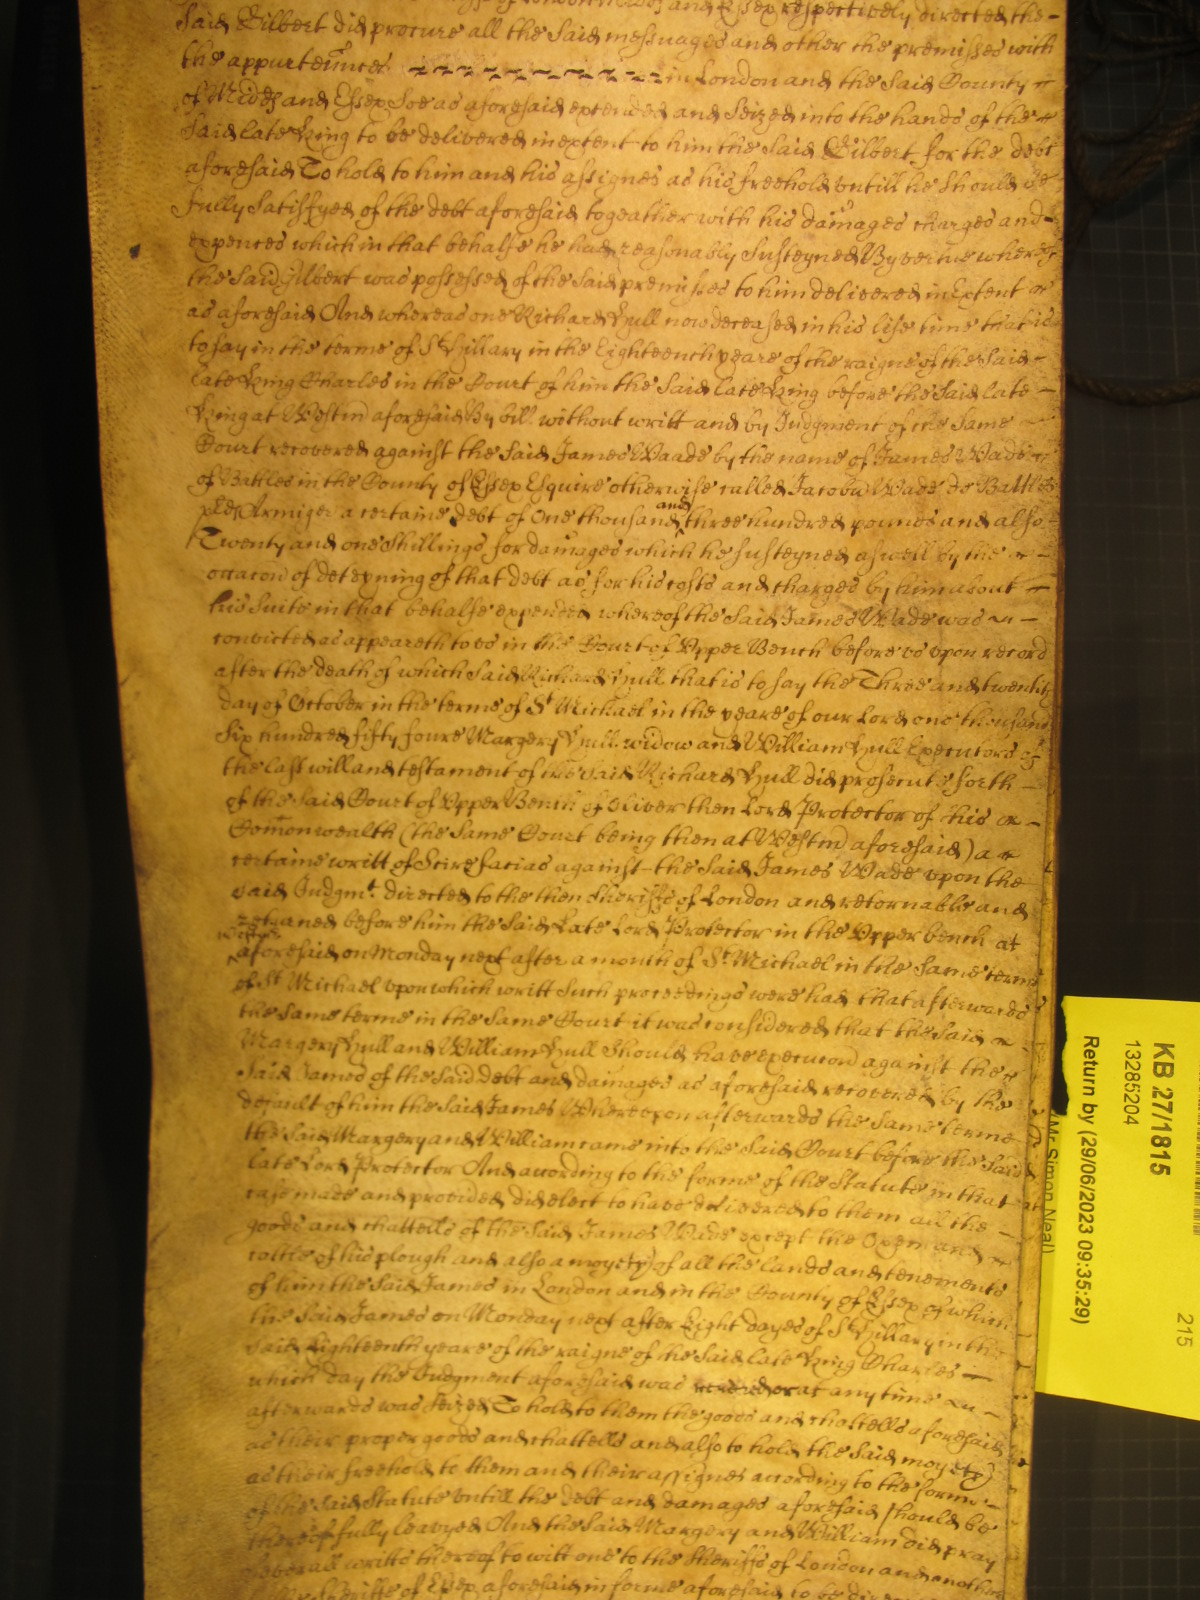 of London Midds and Essex respectively directed the
Said Gilbert did procure all the Said messuages and other the premisses with
the appurtennces in London and the Said County
of Midds and Essex Soe as aforesaid extended and Seized into the hands of the
Said late King to be delivered in extent to him the Said Gilbert for the debt
aforesaid To hold to him and his assignes as his freehold untill he Should be
fully Satisfyed of the debt aforesaid togeather with his damages charges and
expences which in that behalfe he had reasonably Susteyned By vertue whereof
the Said Gilbert was possessed of the Said premisses to him delivered in Extent
as aforesaid And whereas one Richard Hull now deceased in his life time that is
to say in the terme of St Hillary in the Eighteenth yeare of the raigne of the Said
late King Charles in the Court of him the Said late King before the Said late
King at Westm aforesaid By bill without writt and by Judgment of the Same
Court recovered against the Said James Waade by the name of James Wade
of Battles in the County of Essex Esquire otherwise called Jacobu Wade de Battles
pred Armiger a certaine debt of One thousand and three hundred pounds and also
Twenty and one Shillings for damages which he Susteyned aswell by the
occacon of deteyning of that debt as for his costs and charges by him about
his Suite in that behalfe expended whereof the Said James Wade was
convicted as appeareth to us in the Court of Upper Bench before us upon record
after the death of which Said Richard Hull that is to say the Three and twentith
day of October in the terme of St Michael in the yeare of our Lord one thousand
Six hundred fifty foure Margery Hull widow and William Hull Executors of
the last will and testament of the Said Richard Hull did prosecute forth
of the Said Court of Upper Bench of Oliver then Lord Protector of this
Comonwealth (the Same Court being then at Westm aforesaid) a
certaine writt of Scire facias against the Said James Wade upon the
Said Judgmt directed to the then Sheriffs of London and retornable and
retorned before him the Said Late Lord Protector in the Upper bench at
aforesaid on Monday next after a month of St Michael in the Same terme
of St Michael upon which writt Such proceedings were had that afterwards
the Same terme in the Same Court it was considered that the Said
Margery Hull and William Hull Should have execucon against the
Said James of the Said debt and damages as aforesaid recovered by the
default of him the Said James Whereupon afterwards the Same terme
the Said Margery and William came into the Said Court before the Said
late Lord Protector And according to the forme of the Statute in that
case made and provided did elect to have delivered to them all the
goods and chattells of the Said James Wade except the Oxen and
cattle of his plough and also a moyety of all the lands and tenements
of him the Said James in London and in the County of Essex of which
the Said James on Monday next after Eight dayes of St Hillary in the
Said Eighteenth yeare of the raigne of the Said late King Charles
which day the Judgment aforesaid was or at any time
afterwards was Seized To hold to them the goods and chattells aforesaid
as their proper goods and chattells and also to hold the Said moyety
as their freehold to them and their assignes according to the forme
of the Said Statute untill the debt and damages aforesaid should be
thereof fully leavyed And the Said Margery and William did pray
Severall writts thereof to witt one to the Sheriffs of London and another
Sheriffe of Essex aforesaid in forme aforesaid to be
KB 27/1815
13285204
Return by (29/06/2023 09:35:29)
(Mr Simon Neal)
215